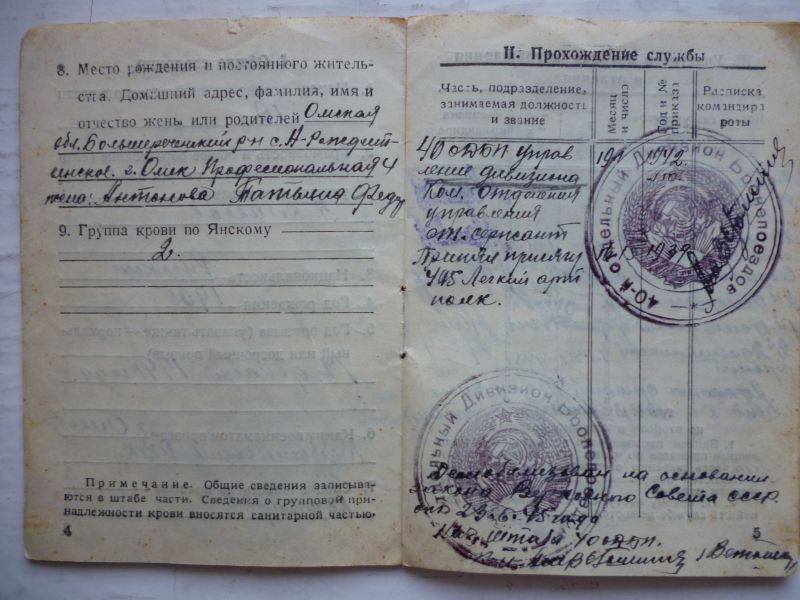 8. Место рождения и постоянного житель-
ства. Домашний адрес, фамилия, имя и
отчество жены или родителей Омская
обл. Большереченский р-н с.
г. Омск Профессиональная 4
жена: Антонова Татьяна Федо
9. Группа крови по Янскому
2.
Примечание. Общие сведения записыва-
ются в штабе части. Сведения о групповой при-
надлежности крови вносятся санитарной частью.
4
II. Прохождение службы
Часть, подразделение,
занимаемая должность
и звание
Месяц
и число
Год и №
приказа
Расписка
командира
роты
40 ОДБП управ
ление дивизиона
Пом. Отделения
управления
ст. сержант
Принял присягу
495 Легкий арт
полк.
1942
1939
40-й отдельный Дивизион Бронепоездов
отдельный Дивизион Бронепоездов
Демобилизован на основании
закона Верховного Совета СССР.
от 23.6.45 года
Нач. штаба 40 ОДБП.
5